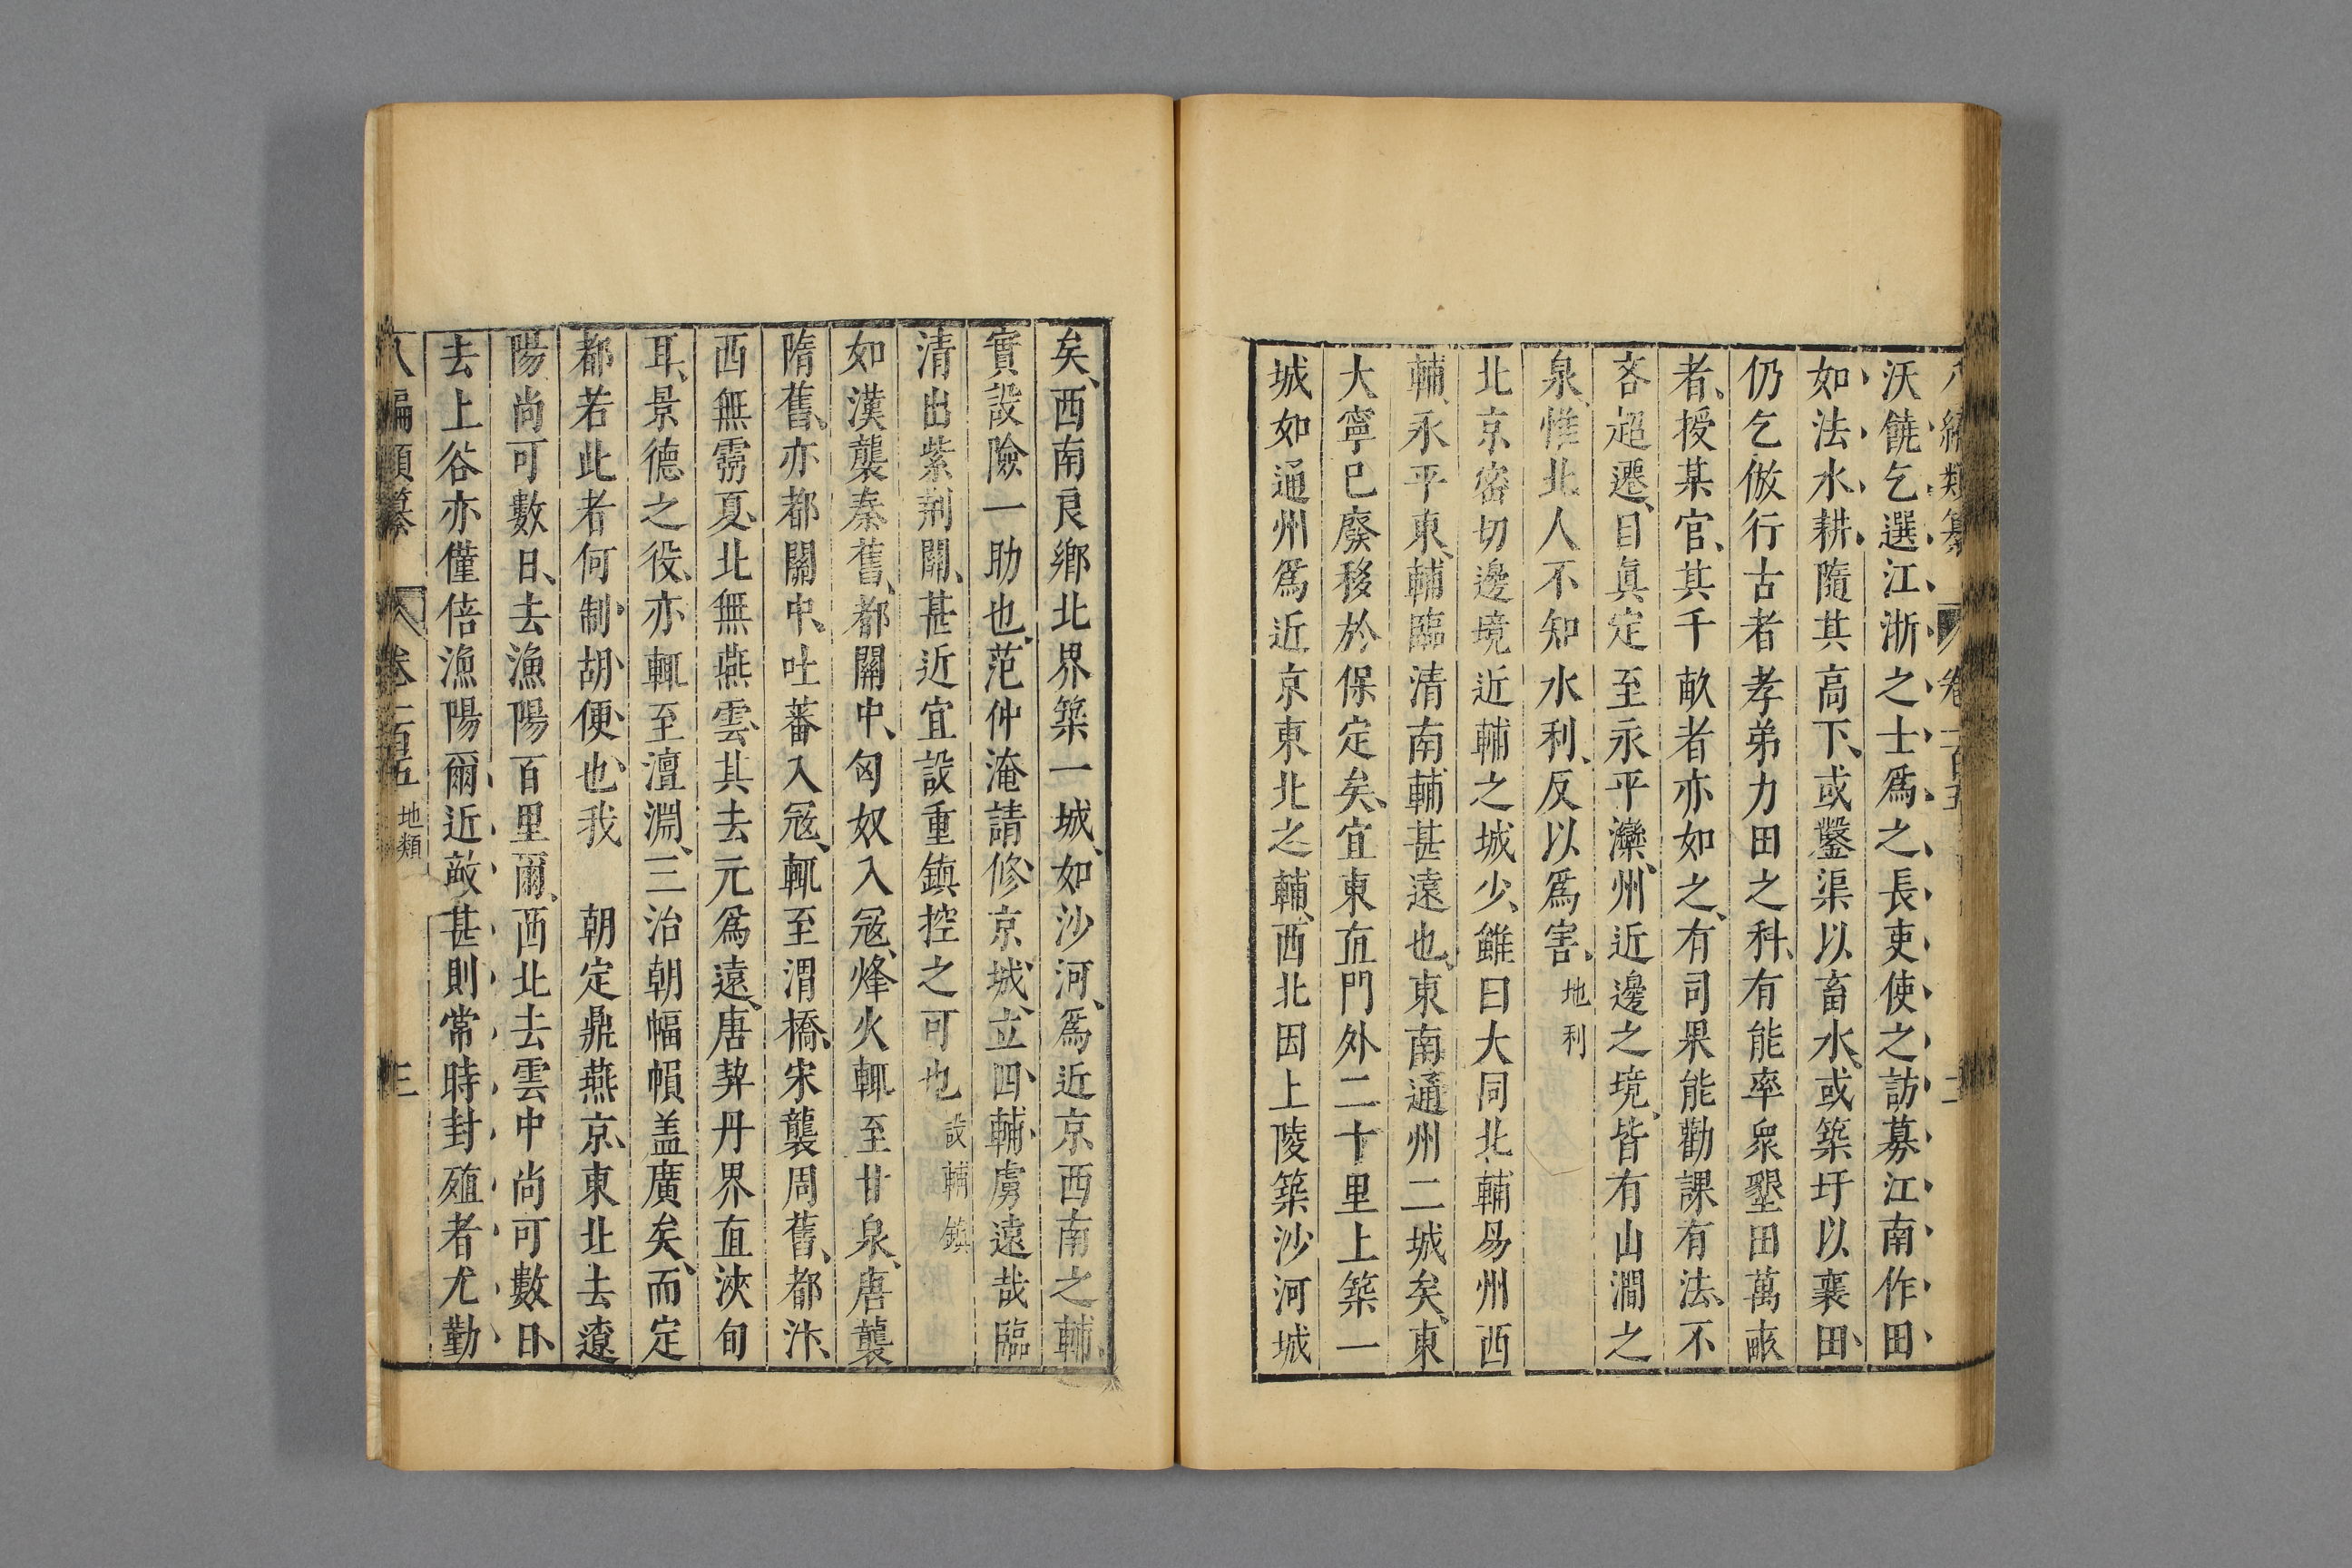 沃饒乞選江浙之士爲之長吏使之訪募江南作田
如法水耕隨其高下、或鑿渠以畜水、或築圩以襄田、
仍乞倣行古者孝弟力田之科、有能率衆墾田萬畝
者、授某官、其千畝者亦如之、有司果能勸課有法、不
吝超遷、自眞定至永平灤、州近邊之境、皆有山澗之
泉、惟北人不知水利、反以爲害、地利
北京密切邊境近輔之城少、雖曰大同北輔易州西
輔、永平東、輔臨清南輔甚遠也、東南通州二城矣、東
大寧巳廢移於保定矣、宜東直門外二十里上築一
城如通州爲近京東北之輔、西北因上陵築沙河城
矣、西南良鄉北界築一城、如沙河、爲近京西南之輔、
實設險一助也、范仲淹請修京城、立四輔虜遠哉臨
清出紫荆關、甚近宜設重鎮控之可也設輔鎮
如漢襲秦舊、都關中、匈奴入寇、烽火輒至甘泉、唐襲
隋舊、亦都關中、吐蕃入寇、輒至渭橋、宋襲周舊、都汴、
西無靈夏、北無燕雲、其去元爲遠、唐契丹界直浹旬
耳、景德之役、亦輒至澶淵、三治朝幅幀盖廣矣、而定
都若此者何制胡便也、我　朝定鼎燕京、東北去遼
陽尚可數日、去漁陽百里爾、西北去雲中尚可數日、
去上谷亦僅倍漁陽爾近敵甚則常時封殖者尤勤
八編類纂　卷一百五　地類　三